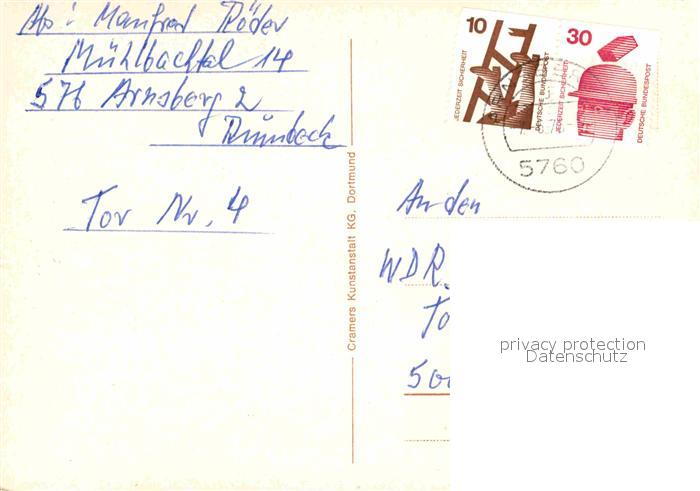 Abs: Manfred Röder
Mühlbachtal 14
576 Arnsberg 2
Rumbeck
Tor Nr. 4
Cramers Kunstanstalt KG, Dortmund
10
JEDERZEIT SICHERHEIT
DEUTSCHE BUNDESPOST
30
JEDERZEIT SICHERHEIT
DEUTSCHE BUNDESPOST
5760
An den
WDR.
To
500
privacy protection
Datenschutz